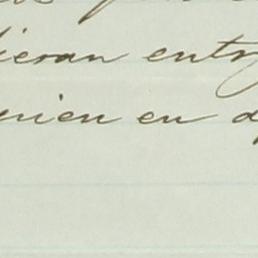 ieran entr
nien en d